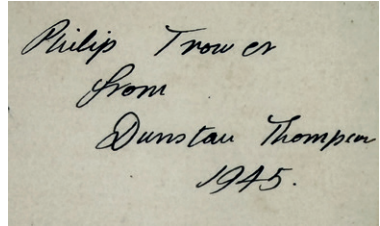 Philip Trower
from
Dunstan Thompson
1945.